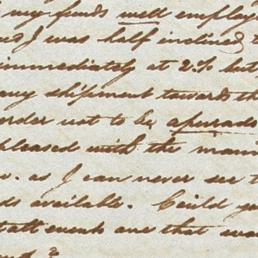 my funds well employ
and I was half inclined t
immediately at 2/. but
any shipment towards th
order not to be
pleased with the mann
as I can never see t
ds available. Could yo
at all events are that